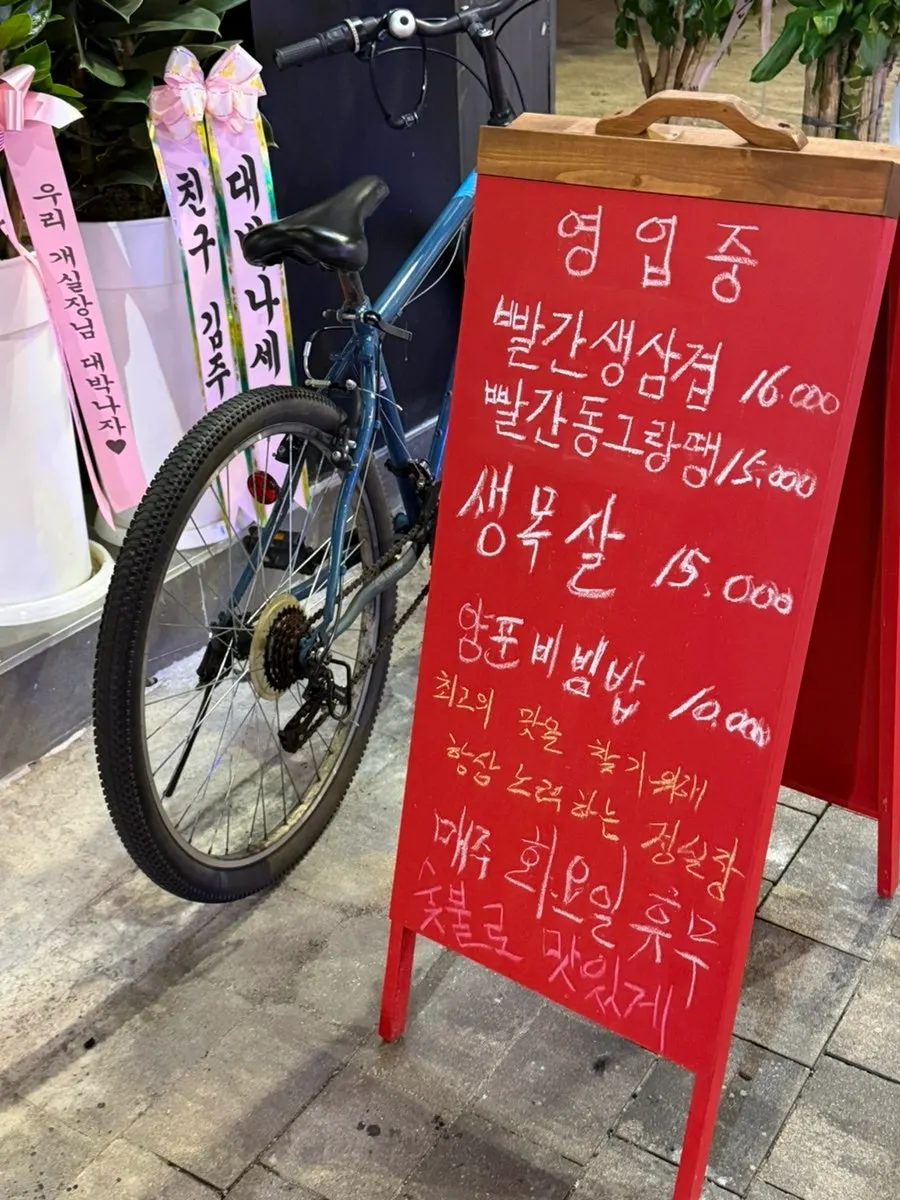 우리 개실장님 대박나자♥
친구 김주
영업중
빨간생삼겹 16.000
빨간동그랑땡 15.000
생목살 15.000
양푼비빔밥 10.000
최고의 맛을 찾기 위해
항상 노력하는 정실장
매주 화요일 휴무
숯불로 맛있게